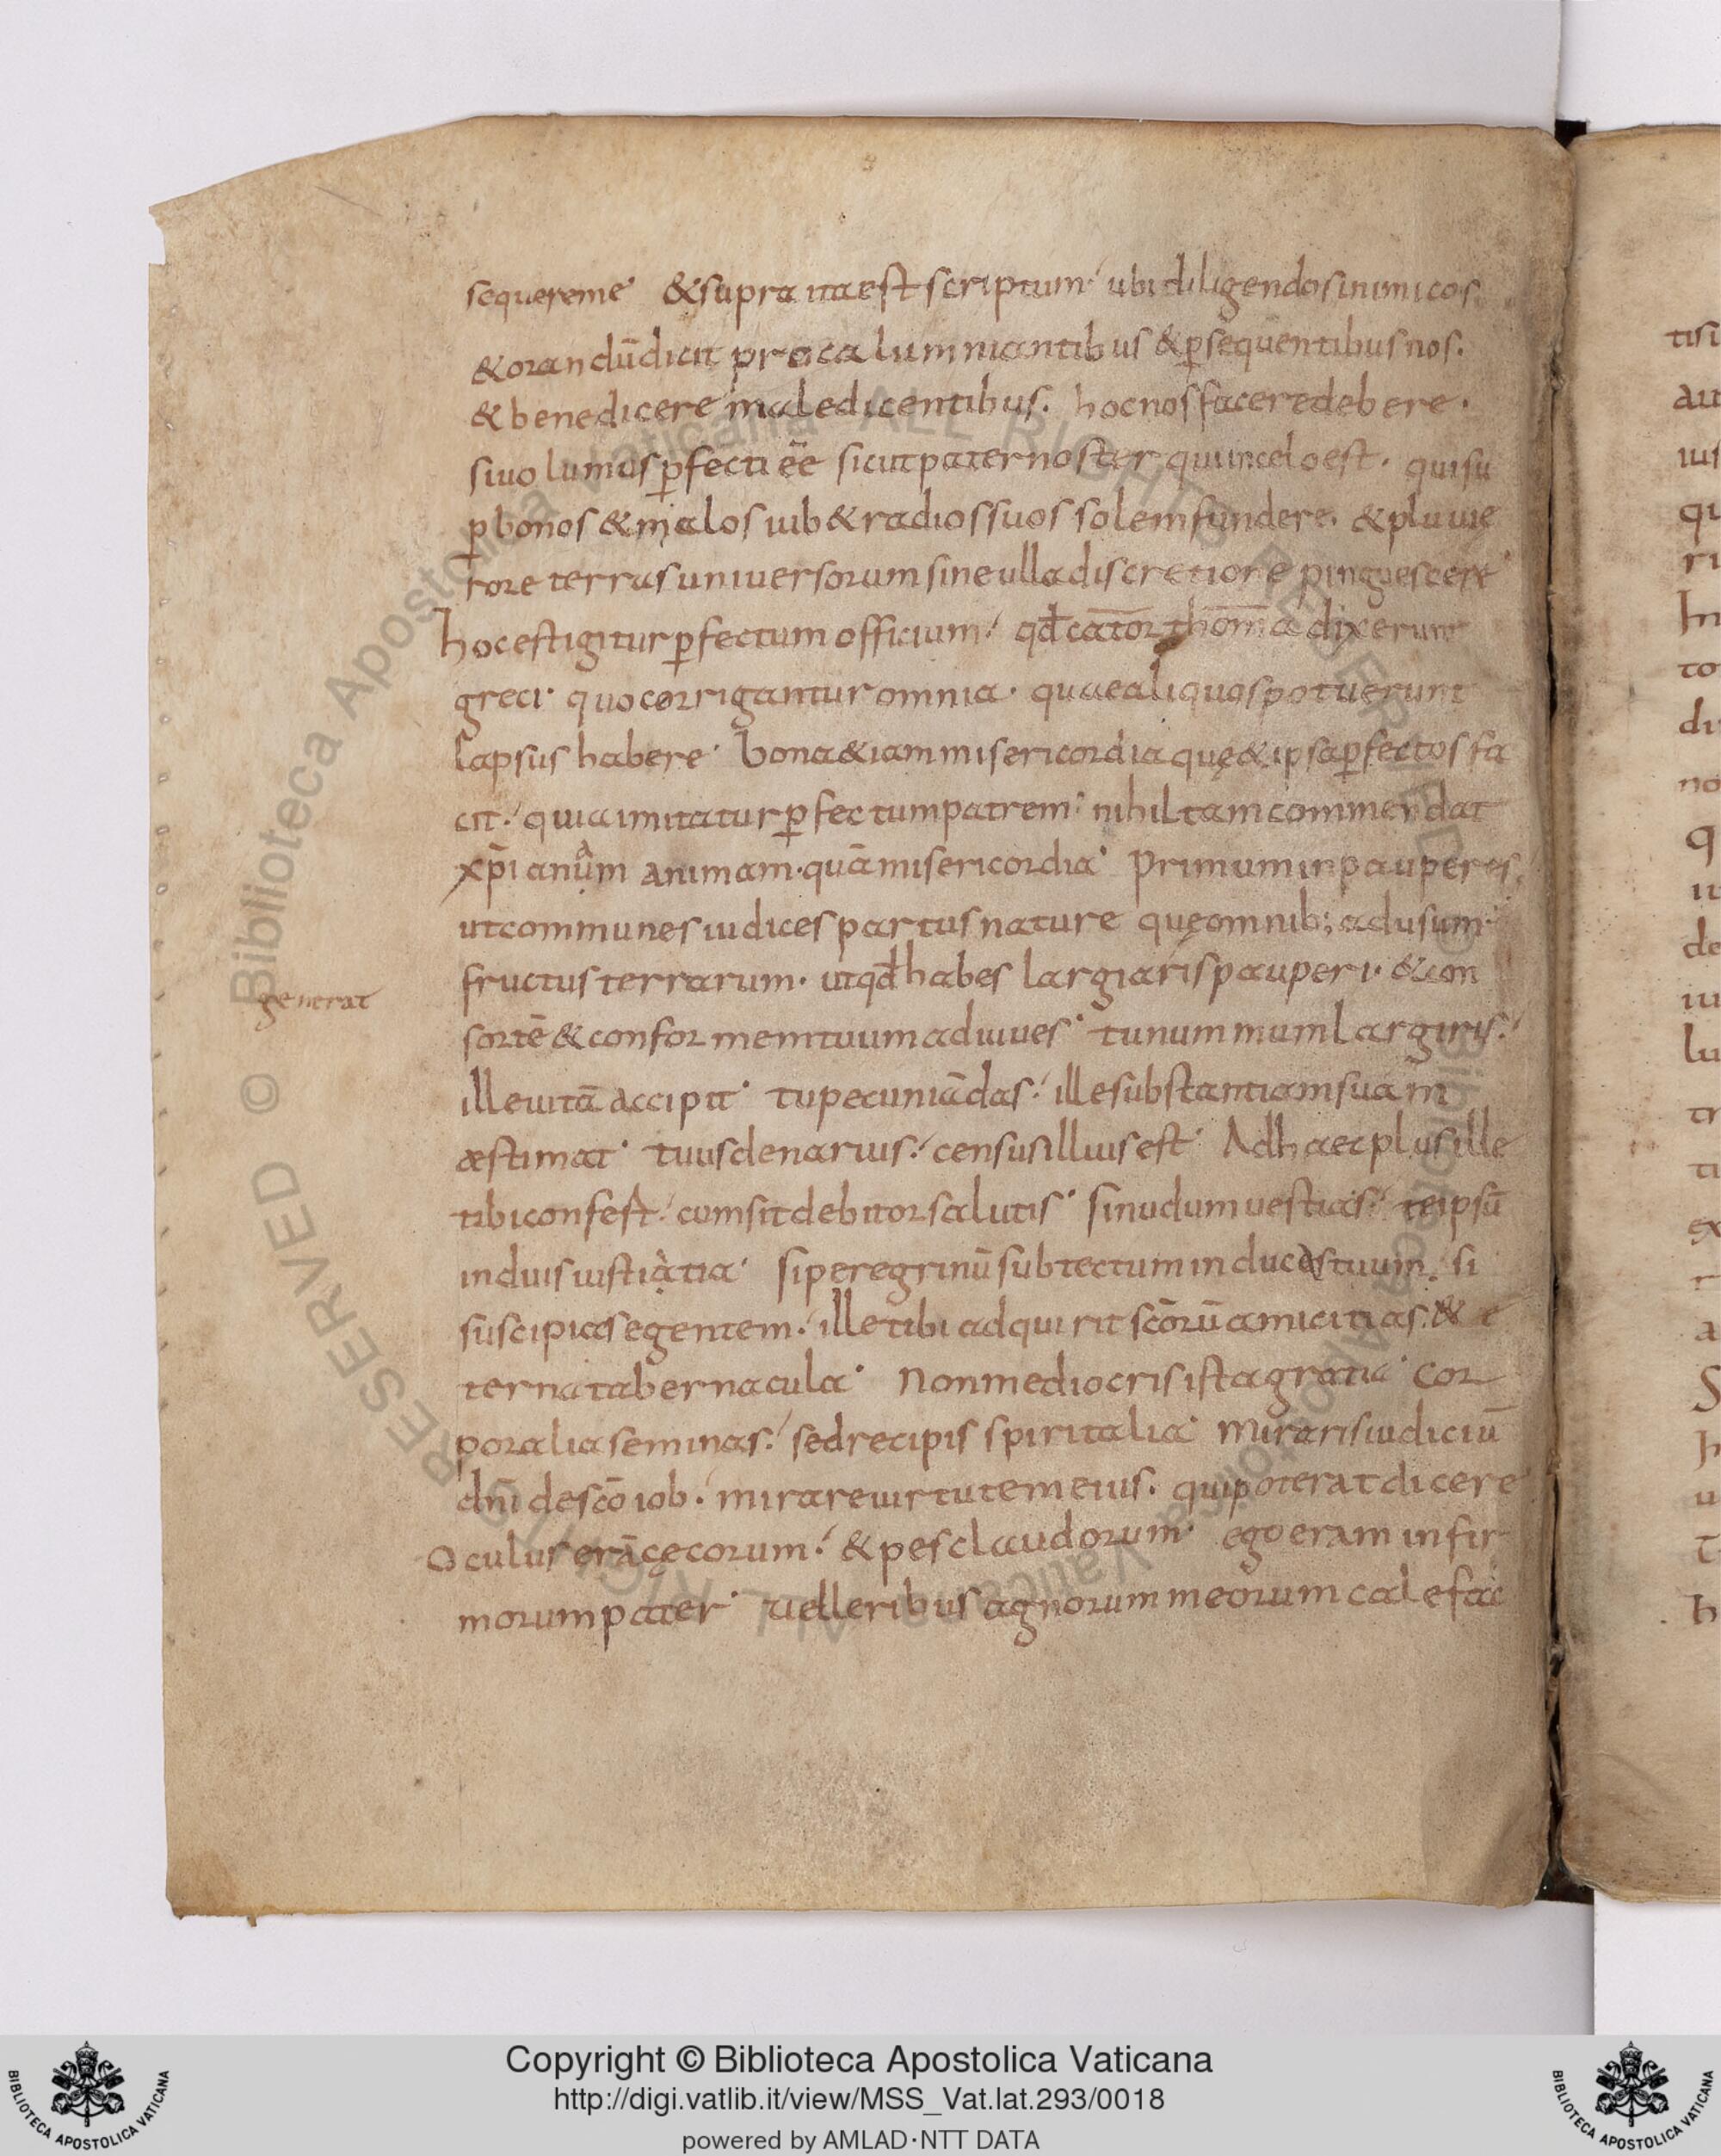 sequereme· &supra itaest scriptum ubi diligendosinimicos
&orandūdicit procalumniantibus &ꝑsequentibusnos.
&benedicere maledicentibus. hocnosfaceredebere.
siuolumusꝑfecti eē̄ sicutpaternoster quiincęloest. quisu
ꝑbonos &malos iub&radiossuos solemfundere. &pluuię
rore terrasuniuersorumsineulladiscretione pinguescere
hocestigiturꝑfectumofficium· qđcatorthoma dixerunt
greci· quocorriganturomnia· quaealiquospotuerunt
lapsus habere· bona&iammisericordiaquę&ipsaꝑfectosfa
cit· quiaimitaturꝑfectumpatrem· nihiltamcommendat
xp̄ianam animam·quāmisericordia· primuminpauperes.
utcommunesiudicespartusnature quęomnib; adusum
generat
fructusterrarum· utqđhabes largiarispauperi· &con
sortē&conformemtuumadiuues· tunummumlargiris·
illeuitā accipit· tupecuniādas· illesubstantiamsuam
æstimat· tuusdenarius· censusilliusest· Adhaecplusille
tibiconfert· cumsitdebitorsalutis· sinudumuestias· teipsū
induisiustitia· siperegrinūsubtectuminducastuum. si
suscipiasegentem· illetibiadquirit scōrūamicitias. & e
ternatabernacula· Nonmediocrisistagratia· cor
poraliaseminas· sedrecipis spiritalia· mirarisiudiciū
dn̄i descō iob· mirareuirtutemeius. quipoteratdicere
Oculuserācęcorum· &pesclaudorum· egoeram infir
morumpater· Uelleribusagnorummeorumcalefac
tisi
au
ius
qu
ri
In
to
di
no
q
iu
de
iu
lu
tr
ti
ex
r
a
S
h
u
T
h
Copyright © Biblioteca Apostolica Vaticana
http://digi.vatlib.it/view/MSS_Vat.lat.293/0018
powered by AMLAD·NTT DATA
BIBLIOTECA APOSTOLICA VATICANA
BIBLIOTECA APOSTOLICA VATICANA